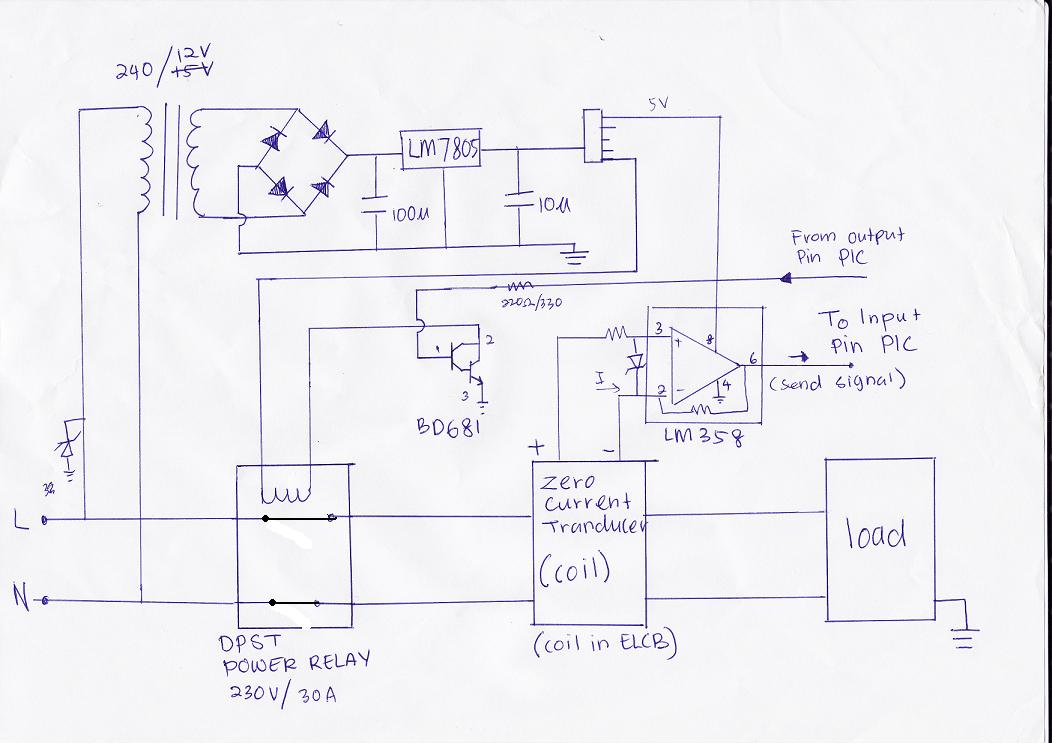 240/12V
+5V
5V
LM7805
100µ
10µ
From output
Pin PIC
220Ω/330
To Input
Pin PIC
(send signal)
3
+
8
6
I
2
-
4
LM358
1
2
3
BD681
+
-
L
N
zero
current
Tranducer
(coil)
(coil in ELCB)
load
DPST
POWER RELAY
230V/30A